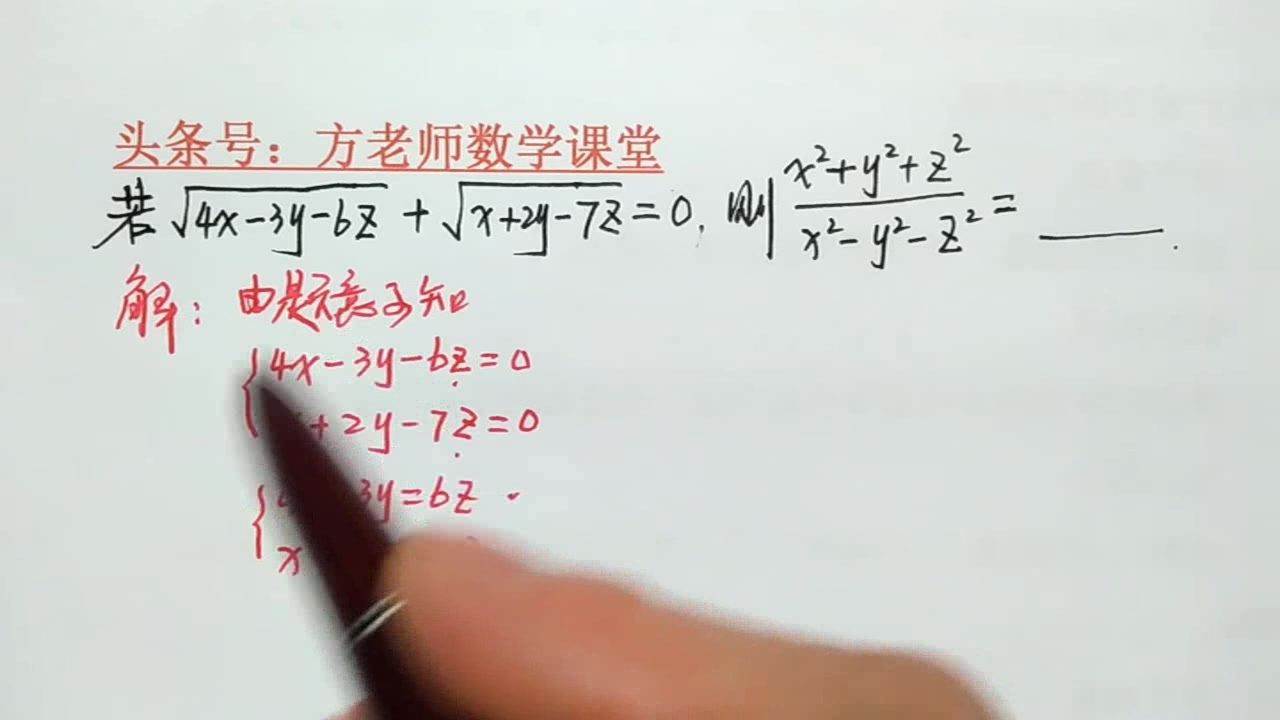 头条号：方老师数学课堂
若 √(4x-3y-6z) + √(x+2y-7z) = 0, 则 (x²+y²+z²)/(x²-y²-z²) = ____.
解：由是意可知
{4x-3y-6z=0
+2y-7z=0
{ 3y=6z
x